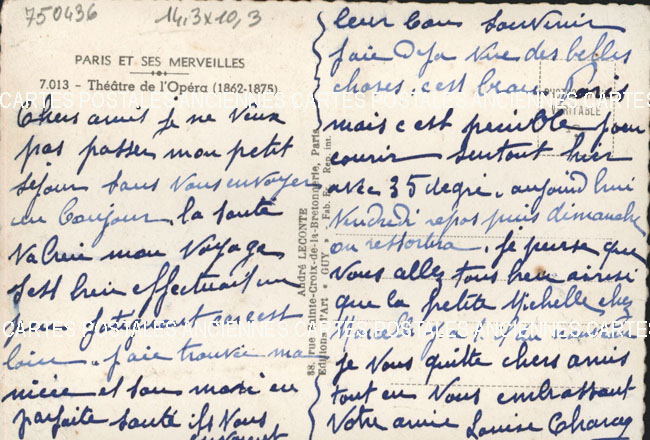 750436 14,3x10,3
PARIS ET SES MERVEILLES
7.013 - Théâtre de l'Opéra (1862-1875)
Chers amis je ne veux
pas passer mon petit
séjour sans vous envoyer
un Bonjour, la santé
va bien mon voyage
s'est bien effectuait un
peu fatiguant car c'est
loin, j'aie trouvée ma
nièce et son mari en
parfaite santé ils vous
envoient
André LECONTE
38, rue Sainte-Croix-de-la-Bretonnerie, Paris
Editions d'Art "GUY" Fab. Fr. Rep. int.
leur bons souvenir
j'aie Déja vue des belles
choses, c'est beau Paris
mais c'est penible pour
courir surtout hier
avec 35 degré, aujourd'hui
Vendredi repos puis dimanche
on ressortira, je pense que
vous allez tous bien ainsi
que la petite Michelle chez
je vous quitte chers amis
tout en vous embrassant
votre amie Louise
VERITABLE
CARTES POSTALES ANCIENNES CARTES POSTALES ANCIENNES CARTES POSTALES